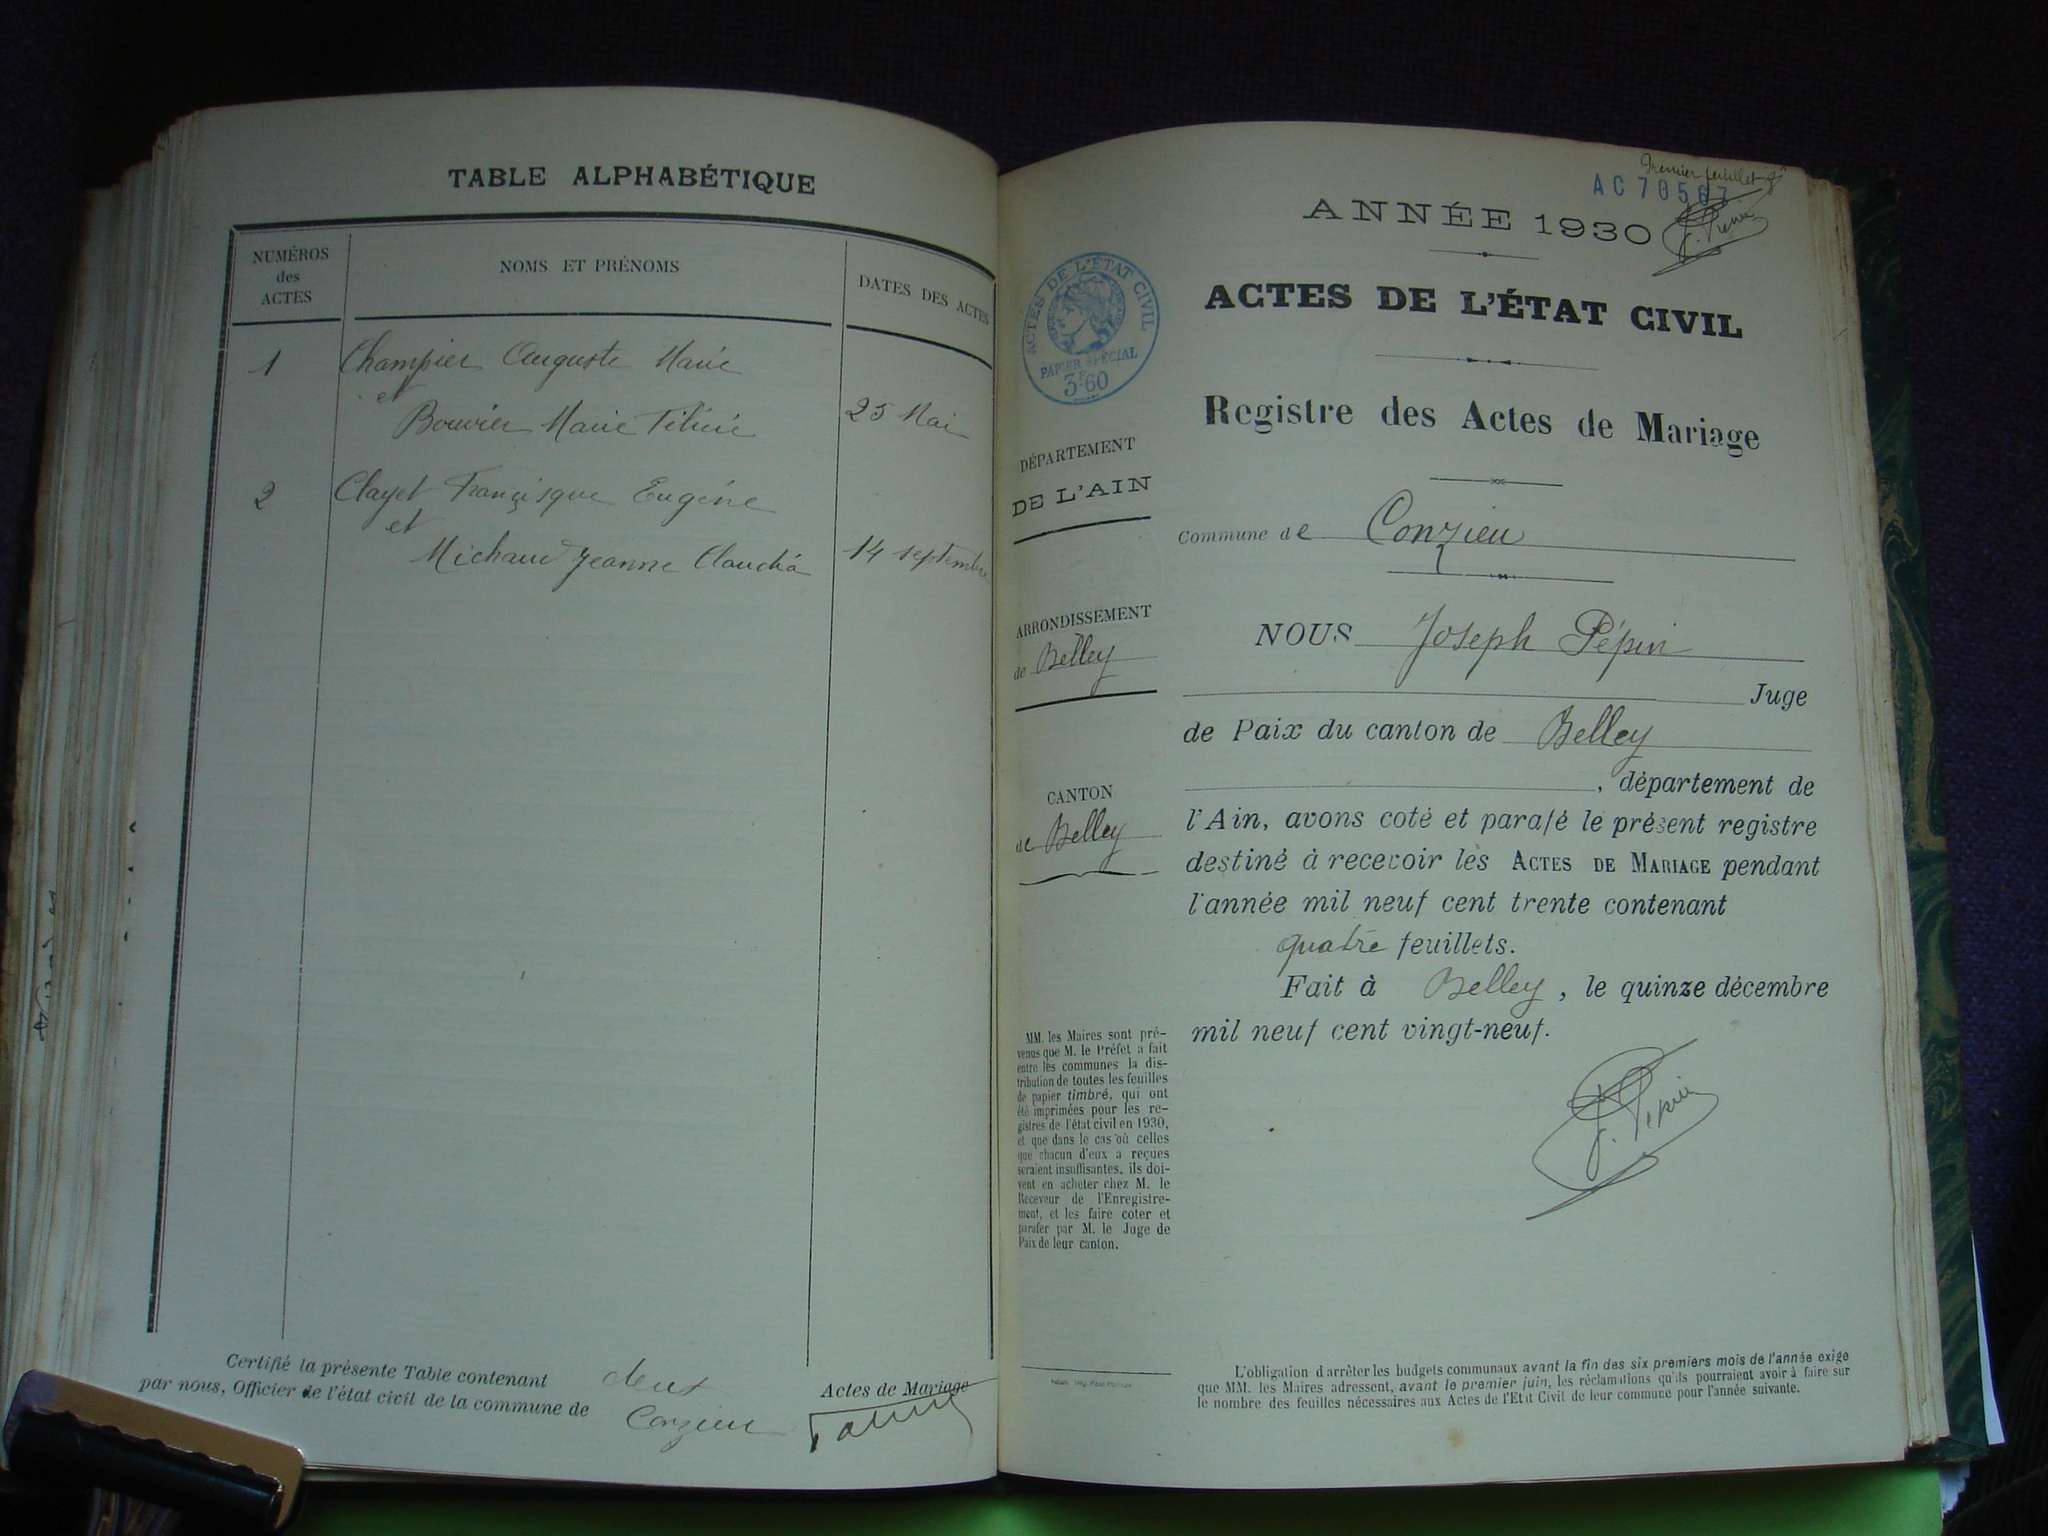 TABLE ALPHABÉTIQUE
NUMÉROS
des
ACTES
NOMS ET PRÉNOMS
DATES DES ACTES
1 Champier Auguste Marie
et
Bouvier Marie Félicie 25 Mai
2 Clayet Françisque Eugène
et
Michaud Jeanne Claudia 14 septembre
Certifié la présente Table contenant deux Actes de Mariage
par nous, Officier de l'état civil de la commune de Conzieu
Premier feuillet
AC 70567
ANNÉE 1930
J. Pépin
ACTES DE L'ÉTAT CIVIL
PAPIER SPÉCIAL
3F.60
ACTES DE L'ÉTAT CIVIL
Registre des Actes de Mariage
DÉPARTEMENT
DE L'AIN
Commune de Conzieu
ARRONDISSEMENT
de Belley
CANTON
de Belley
NOUS Joseph Pépin
Juge
de Paix du canton de Belley
, département de
l'Ain, avons coté et parafé le présent registre
destiné à recevoir les ACTES DE MARIAGE pendant
l'année mil neuf cent trente contenant
quatre feuillets.
Fait à Belley, le quinze décembre
mil neuf cent vingt-neuf.
J. Pépin
MM. les Maires sont pré-
venus que M. le Préfet a fait
entre les communes la dis-
tribution de toutes les feuilles
de papier timbré, qui ont
été imprimées pour les re-
gistres de l'état civil en 1930,
et que dans le cas où celles
que chacun d'eux a reçues
seraient insuffisantes, ils doi-
vent en acheter chez M. le
Receveur de l'Enregistre-
ment, et les faire coter et
parafer par M. le Juge de
Paix de leur canton.
L'obligation d'arrêter les budgets communaux avant la fin des six premiers mois de l'année exige
que MM. les Maires adressent, avant le premier juin, les réclamations qu'ils pourraient avoir à faire sur
le nombre des feuilles nécessaires aux Actes de l'Etat Civil de leur commune pour l'année suivante.